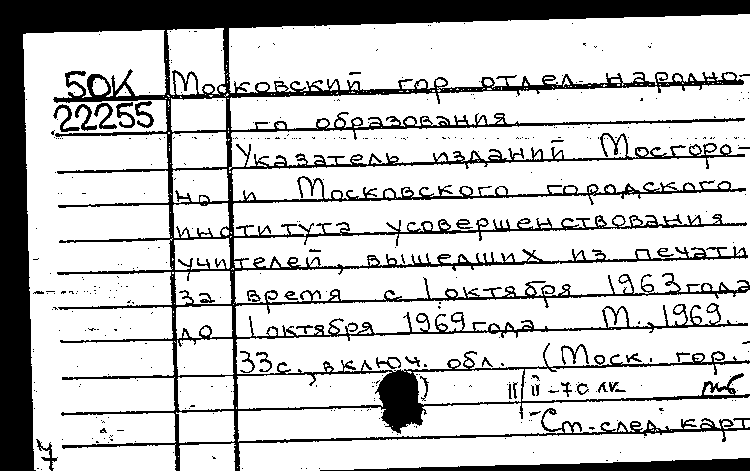 50К Московский гор отдел народно-
22255 го образования.
Указатель изданий Мосгоро-
но и Московского городского
института усовершенствования
учителей, вышедших из печати
за время с 1 октября 1963 года
до 1 октября 1969 года. М., 1969.
33с., включ. обл. (Моск. гор.
)
-70 лк
Ст. след. карт